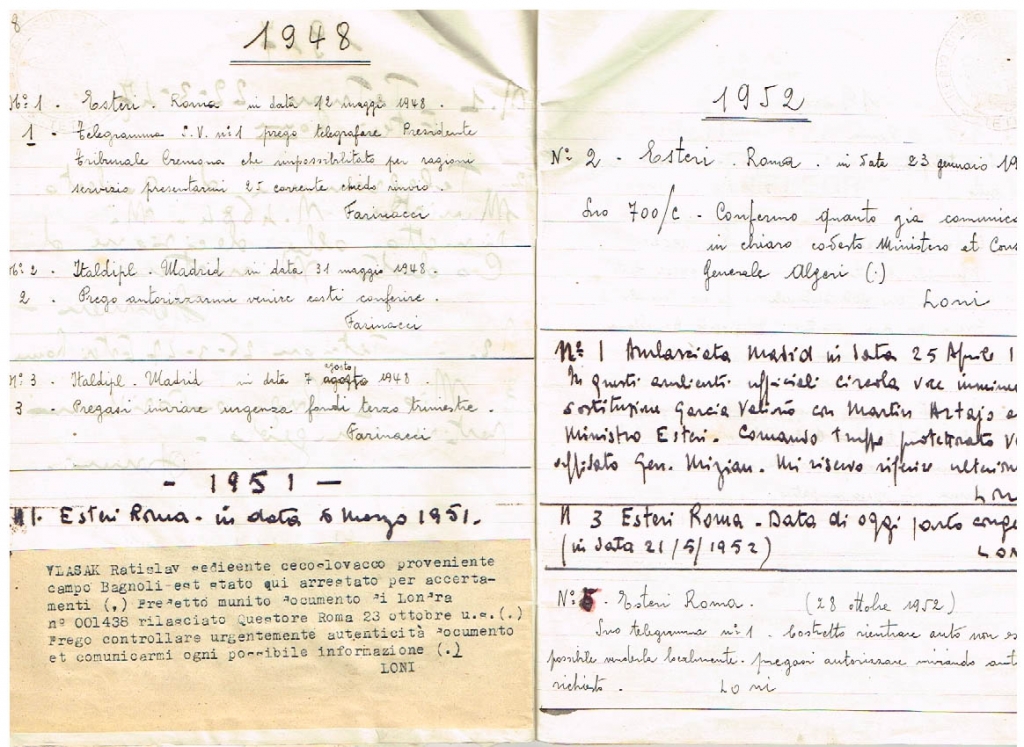 8
1948
N° 1 - Esteri. Roma in data 12 maggio 1948.
1 - Telegramma S.V. n° 1 prego telegrafare Presidente
Tribunale Cremona che impossibilitato per ragioni
servizio presentarmi 25 corrente chiedo rinvio.
Farinacci
N° 2 - Italdipl. Madrid in data 31 maggio 1948.
2 - Prego autorizzarmi venire costì conferire.
Farinacci
agosto
N° 3 - Italdipl. Madrid in data 7 agosto 1948.
3 - Pregasi inviare urgenza fondi terzo trimestre.
Farinacci
- 1951 -
N1. Esteri Roma. in data 6 Marzo 1951.
VLASAK Ratislav sedicente cecoslovacco proveniente
campo Bagnoli est stato qui arrestato per accerta-
menti (.) Predetto munito documento di Londra
n° 001438 rilasciato Questore Roma 23 ottobre u.s.(.)
Prego controllare urgentemente autenticità documento
et comunicarmi ogni possibile informazione (.)
LONI
1952
N° 2 - Esteri. Roma. in data 23 gennaio 19
Suo 700/C - Confermo quanto già comunica
in chiaro codesto Ministero et Cons
Generale Algeri (.)
Loni
N° 1 Ambasciata Madrid in data 25 Aprile 1
In questi ambienti ufficiali circola voce immine
sostituzione Garcia Valiño con Martin Artajo
Ministro Esteri. Comando truppe protettorato
affidato Gen. Mizian. Mi riservo riferire ulterior
LONI
N 3 Esteri Roma. Data di oggi parto conge
(in data 21/5/1952) LONI
N° 5. Esteri Roma. (28 ottobre 1952)
Suo telegramma n° 1. Costretto rientrare auto non es
possibile venderla localmente. pregasi autorizzare
richiesto. Loni